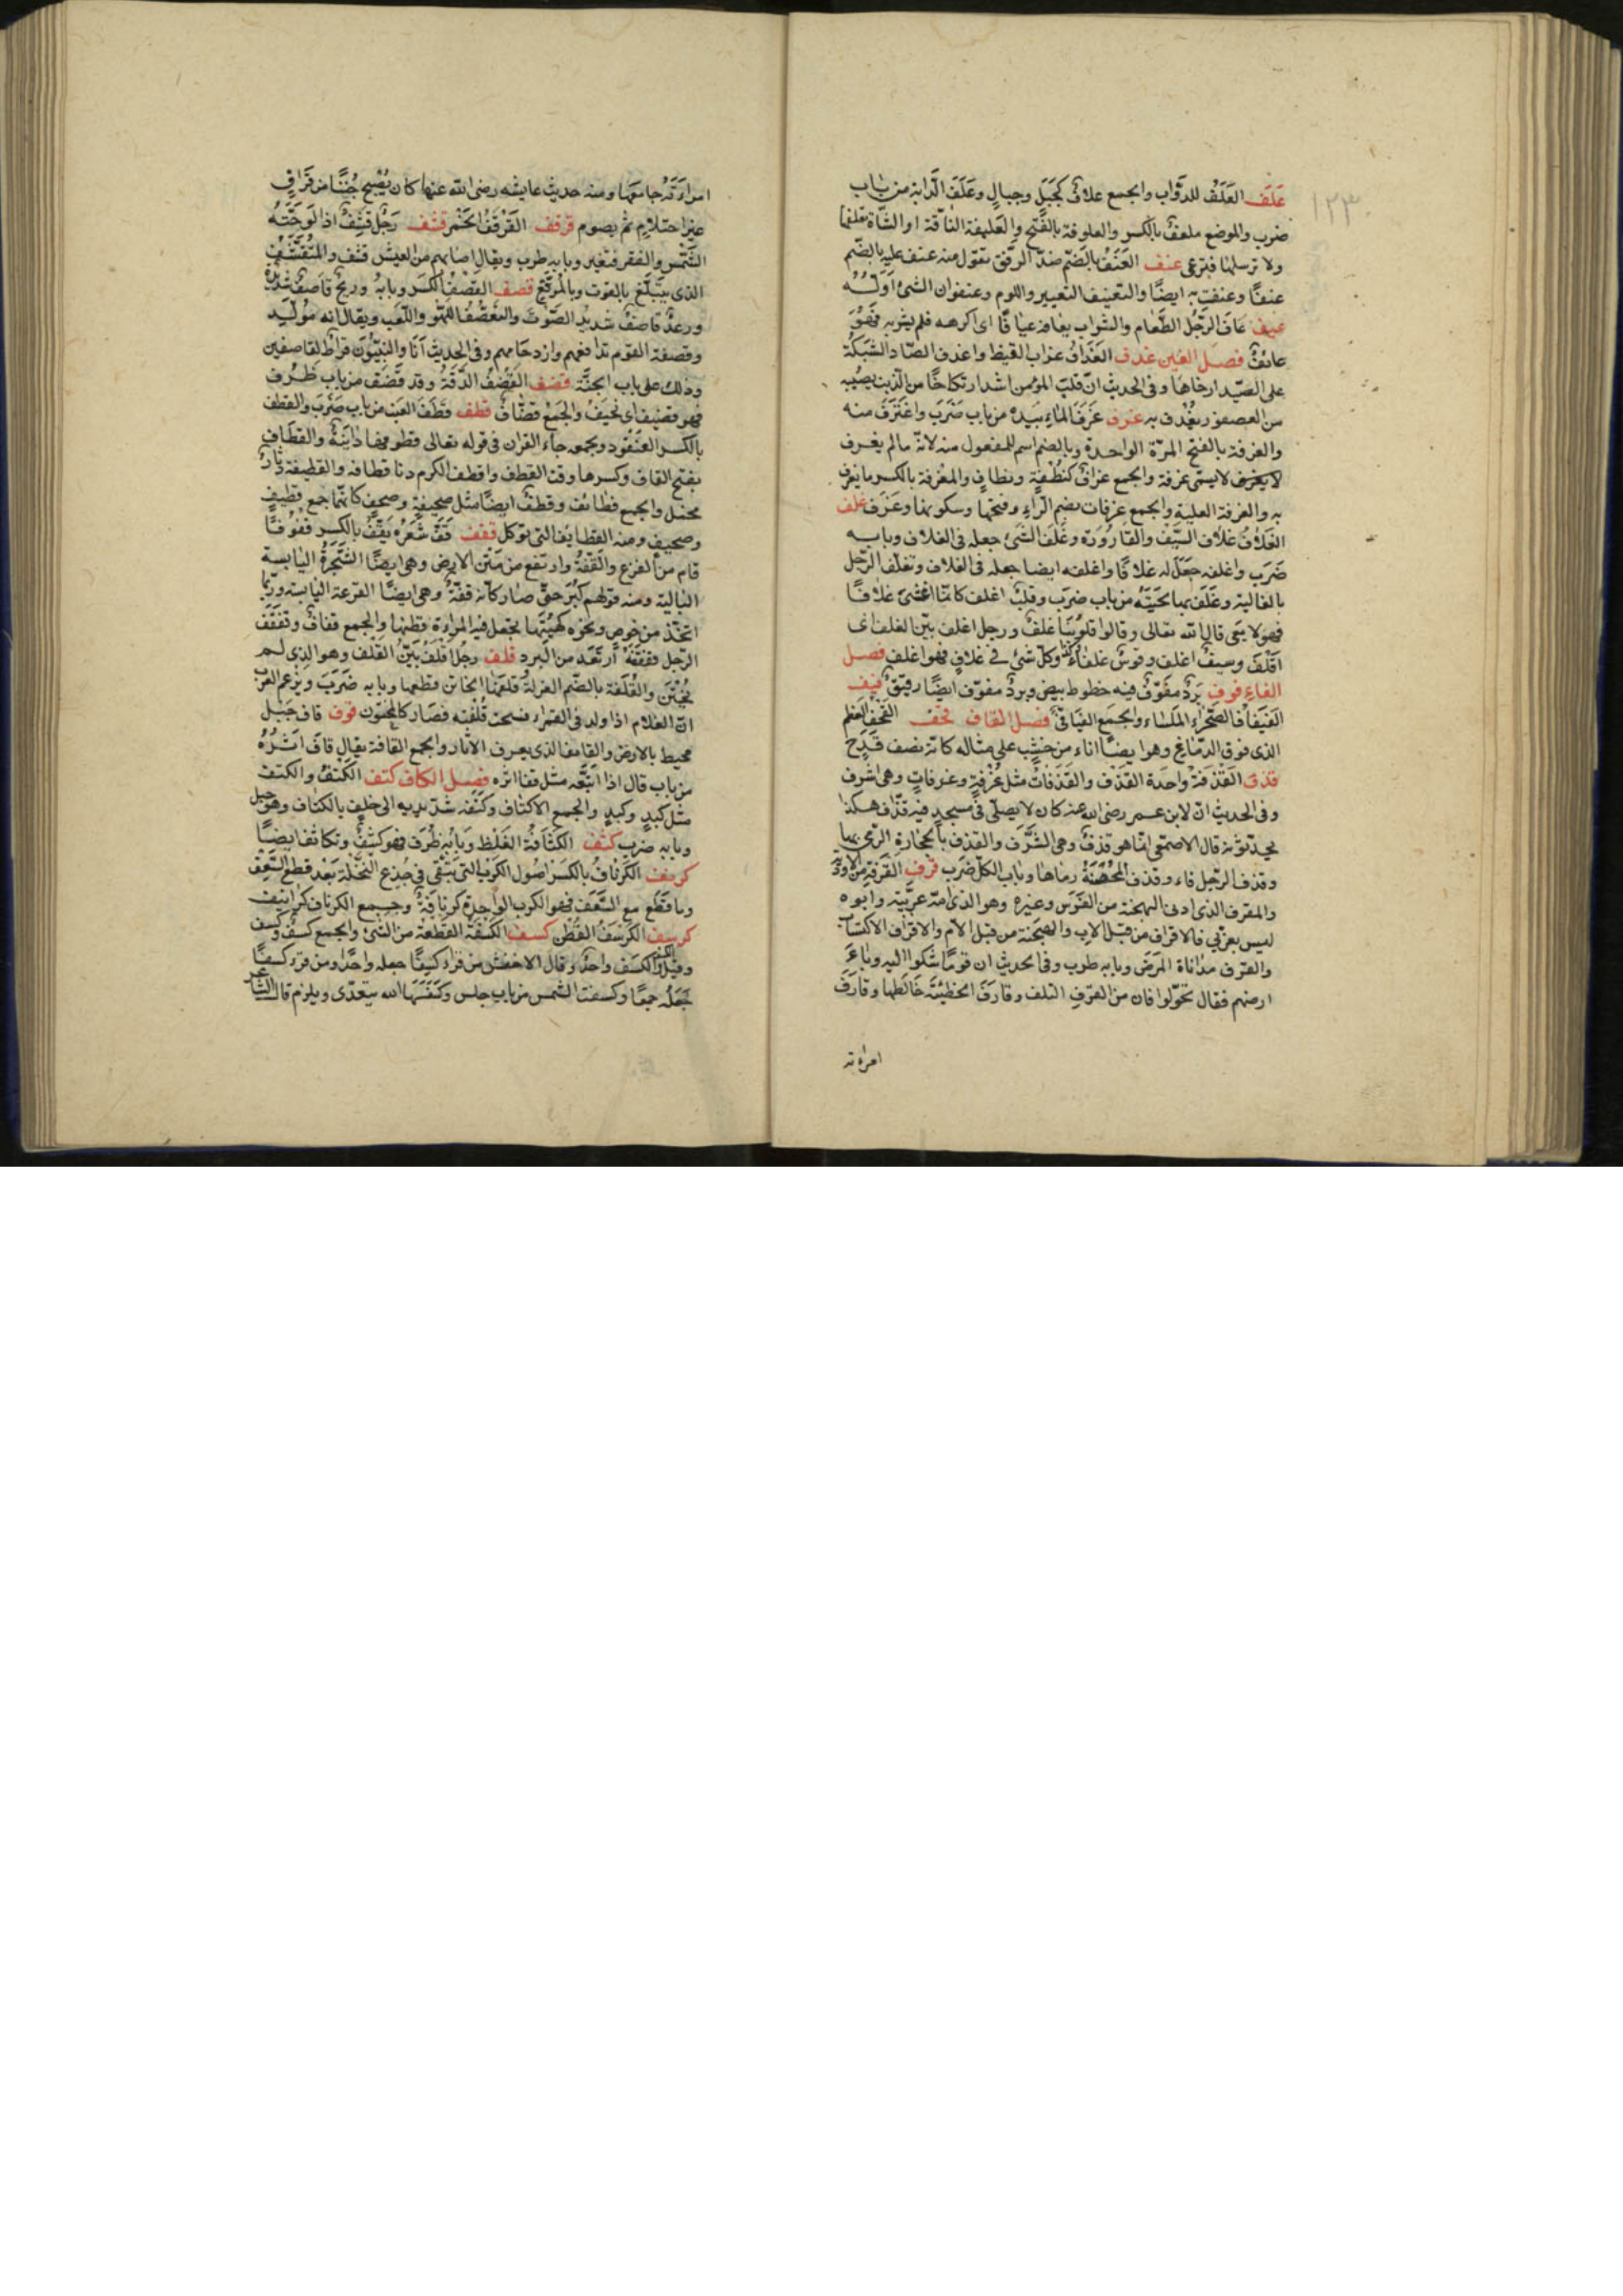 ١٢٣
علف العَلَفُ للدوّاب والجمع علاف كجَبَلٍ وجبالٍ وعَلَفَ الدّابة من باب
ضرب والموضع معلف بالكسر والعلوفة بالفتح والعليفة الناقة او الشاة تعلفها
ولا ترسلها فترعى عنف العُنف بالضّم ضدّ الرّفق تقول منه عنف عليه بالضّم
عنفًا وعنفت به ايضًا والتعنيف التعيير واللوم وعنفوان الشئ اوّلُه
عيف عاف الرّجُل الطّعام والشراب يعافه عيافًا اى اكرهه فلم يشربه فهُوَ
عائفٌ فصل الغين غدف الغُدَافُ غراب القيظ واغدف الصّياد الشبكة
على الصّيد ارخاها وفى الحديث انّ قلبَ المؤمن اشد ارتكاضًا من الذنب يصيبه
من العصفور يغدف به غرف غَرَفَ الماءَ بيده من باب ضَرَبَ واغتَرَفَ منه
والغرفة بالفتح المرّة الواحدة وبالضم اسم للمفعول منه لانّه مالم يغرف
لا يسمّى غرفة والجمع غراف كنُطْفَةٍ ونطافٍ والمغْرفة بالكسر ما يغرف
به والغرفة العلية والجمع غرفات بضم الرّاء وفتحها وسكونها وغرَف غلف
الغلافُ غلاف السّيف والقارُورَة وغَلَفَ الشئ جعله فى الغلاف وبابه
ضَرَب واغلفه جعَل له غلافًا واغلفه ايضا جعله فى الغلاف وتغلّف الرّجل
بالغالية وغَلَفَ بها لحيَتَهُ من باب ضرَب وقلبٌ اغلف كانّما اغشى غلافًا
فهو لا يعى قال الله تعالى وقالوا قلُوبُنا غلفٌ ورجل اغلف بيّن الغلف اى
اقْلَفَ وسيفٌ اغلف وقوسٌ غلفاءُ وكلّ شئ فى غلاف فهو اغلف فصل
الفاء فوف بَرَدٌ مفَوّفٌ فيه خطوط بيض وبردٌ مفوّف ايضًا رقيق فيف
الفيفاء الصّحْراءُ الملسَاءُ والجمع الفيافى فصل القاف قحف القحف العظم
الذى فوق الدّماغ وهو ايضًا اناء من خشب على مثاله كانّه نصف قَدَحٍ
قذف القُذْفَةُ واحدة القذف والقذفاتُ مثل غُرفةٍ وغرفاتٍ وهى الشرف
وفى الحديث انّ لابن عمر رضى الله عنه كان لا يصلّى فى مسجدٍ فيه قذاف هكذا
يحدّثونه قال الاصمعى انما هو قذفٌ وهى الشُّرَف والقذف بالحجارة الرّمى بها
وقذف الرّجل قاء وقذف المُحْصَنَةَ رماها وباب الكل ضَرَب قرف القرفة من الادوية
والمقرف الذى ادنى الهجنة من الفَرَس وغيره وهو الذى امّه عربيّة وابوه
ليس بعربي فالاقراف من قبل الاب والهجنة من قبل الامّ والاقتراف الاكتساب
والقرَف مدَاناة المرَض وبابه طرب وفى الحديث ان قومًا شكوا اليه وباءَ
ارضهم فقال تحوّلوا فان من القرَف التلف وقارَفَ الخطيئَة خَالَطها وقارَفَ
امراته
امرَاَتَهُ جامعَها ومنه حديث عايشه رضى الله عنها كان يُصْبح جُنُبًا من قِرَافٍ
غير احتلامٍ ثم يصوم قرقف القَرْقَفُ الخَمْر قشف رَجُل قَشِفٌ اذا لَوّحَتْهُ
الشّمْس والفقر فتغير وبابه طرب ويقال اصابهم من العيش قشف والمتقشّف
الذى يتبلّغ بالقوت وبالمرقّع قصف القَصْفُ الكسر وبابهُ وريحٌ قاصفٌ شديدة
ورعدٌ قاصفٌ شديد الصّوت والقصْفُ اللّهو واللّعب ويقال انه مُولّد
وقصفة القوم تدافعهم وازدحامهم وفى الحديث اَنَا والنبيّون فراط لقاصفين
وذلك على باب الجنّة قضف القَضَفُ الدّقَةُ وقد قَضُف من باب ظرُف
فهو قضيف اى نَحيفٌ والجمْع قضافٌ قطف قطَفَ العنَب من باب ضَرَبَ والقطف
بالكسر العنقُود وبجمعه جاء القران فى قوله تعالى قطوفها دَانيَةٌ والقطاف
بفتح القاف وكسرها وقت القطف واقطف الكرم دنا قطافه والقطيفة دِثارٌ
مخمل والجمع قطائف وقطفٌ ايضًا مثل صحيفةٍ وصحفٍ كانّهما جمع قطيفٍ
وصحيفٍ ومنه القطايف التى توكل قفف قَفّ شَعرُه يَقفّ بالكسر قفُوفًا
قام من الفزع والقُفّةُ وارتفع من متن الارض وهى ايضًا الشّجَرةُ اليابسة
البالية ومنه قولهم كَبُرَ حتى صار كانّه قفّةٌ وهى ايضًا القرعة اليابسة وربّما
اتخذ من خوص ونحوه كهيْئَتها يجعل فيه المراةُ قطنها والجمع قفاف وتقفْقَفَ
الرّجل قفقفَةً ارتعد من البرد قلف رجُل اقلفُ بيّنُ القَلَف وهو الذى لم
يُخْتَن والقُلْفَة بالضّم الغرلةُ قلعَها الخاتن قطعها وبابه ضَرَبَ ويزعم العرب
انّ الغلام اذا ولد فى القمراء فسحت قُلْفَته فصار كالمختون قوف قاف جَبَل
محيط بالارض والقايف الذى يعرف الاثار والجمع القافة يقال قافَ اثَرُهُ
من باب قال اذا اتبَعَه مثل قفا اثره فصل الكاف كتف الكَتْفُ والكتف
مثل كبْدٍ وكبدٍ والجمع الاكتاف وكَتَفَه شدّ يديه الى خلفٍ بالكتاف وهو حبل
وبابه ضرب كثف الكثافَةُ الغلظ وَبابُه ظُرف فهو كثيفٌ وتكاثف ايضًا
كرنف الكرْنافُ بالكسر اصُول الكرَب التى تبْقَى فى جذع النّخلة بَعْد قطع السّعَف
وما قُطع مع السّعف فهو الكرب الواحدة كرنافَةٌ وجمع الكرناف كرانيف
كرسف الكُرْسُفُ القُطْن كسف الكسْفَة القطعة من الشئ والجمع كسْفٌ وكسف
وقيل الكسف والكسفة واحدٌ وقال الاخفش من قراء كسْفًا جعله واحدًا ومن قرء كسَفًا
جَعَلَهُ جمعًا وكسفت الشمس من باب جلس وكسَفَهَا الله يتعدّى ويلزم قال الشاعر